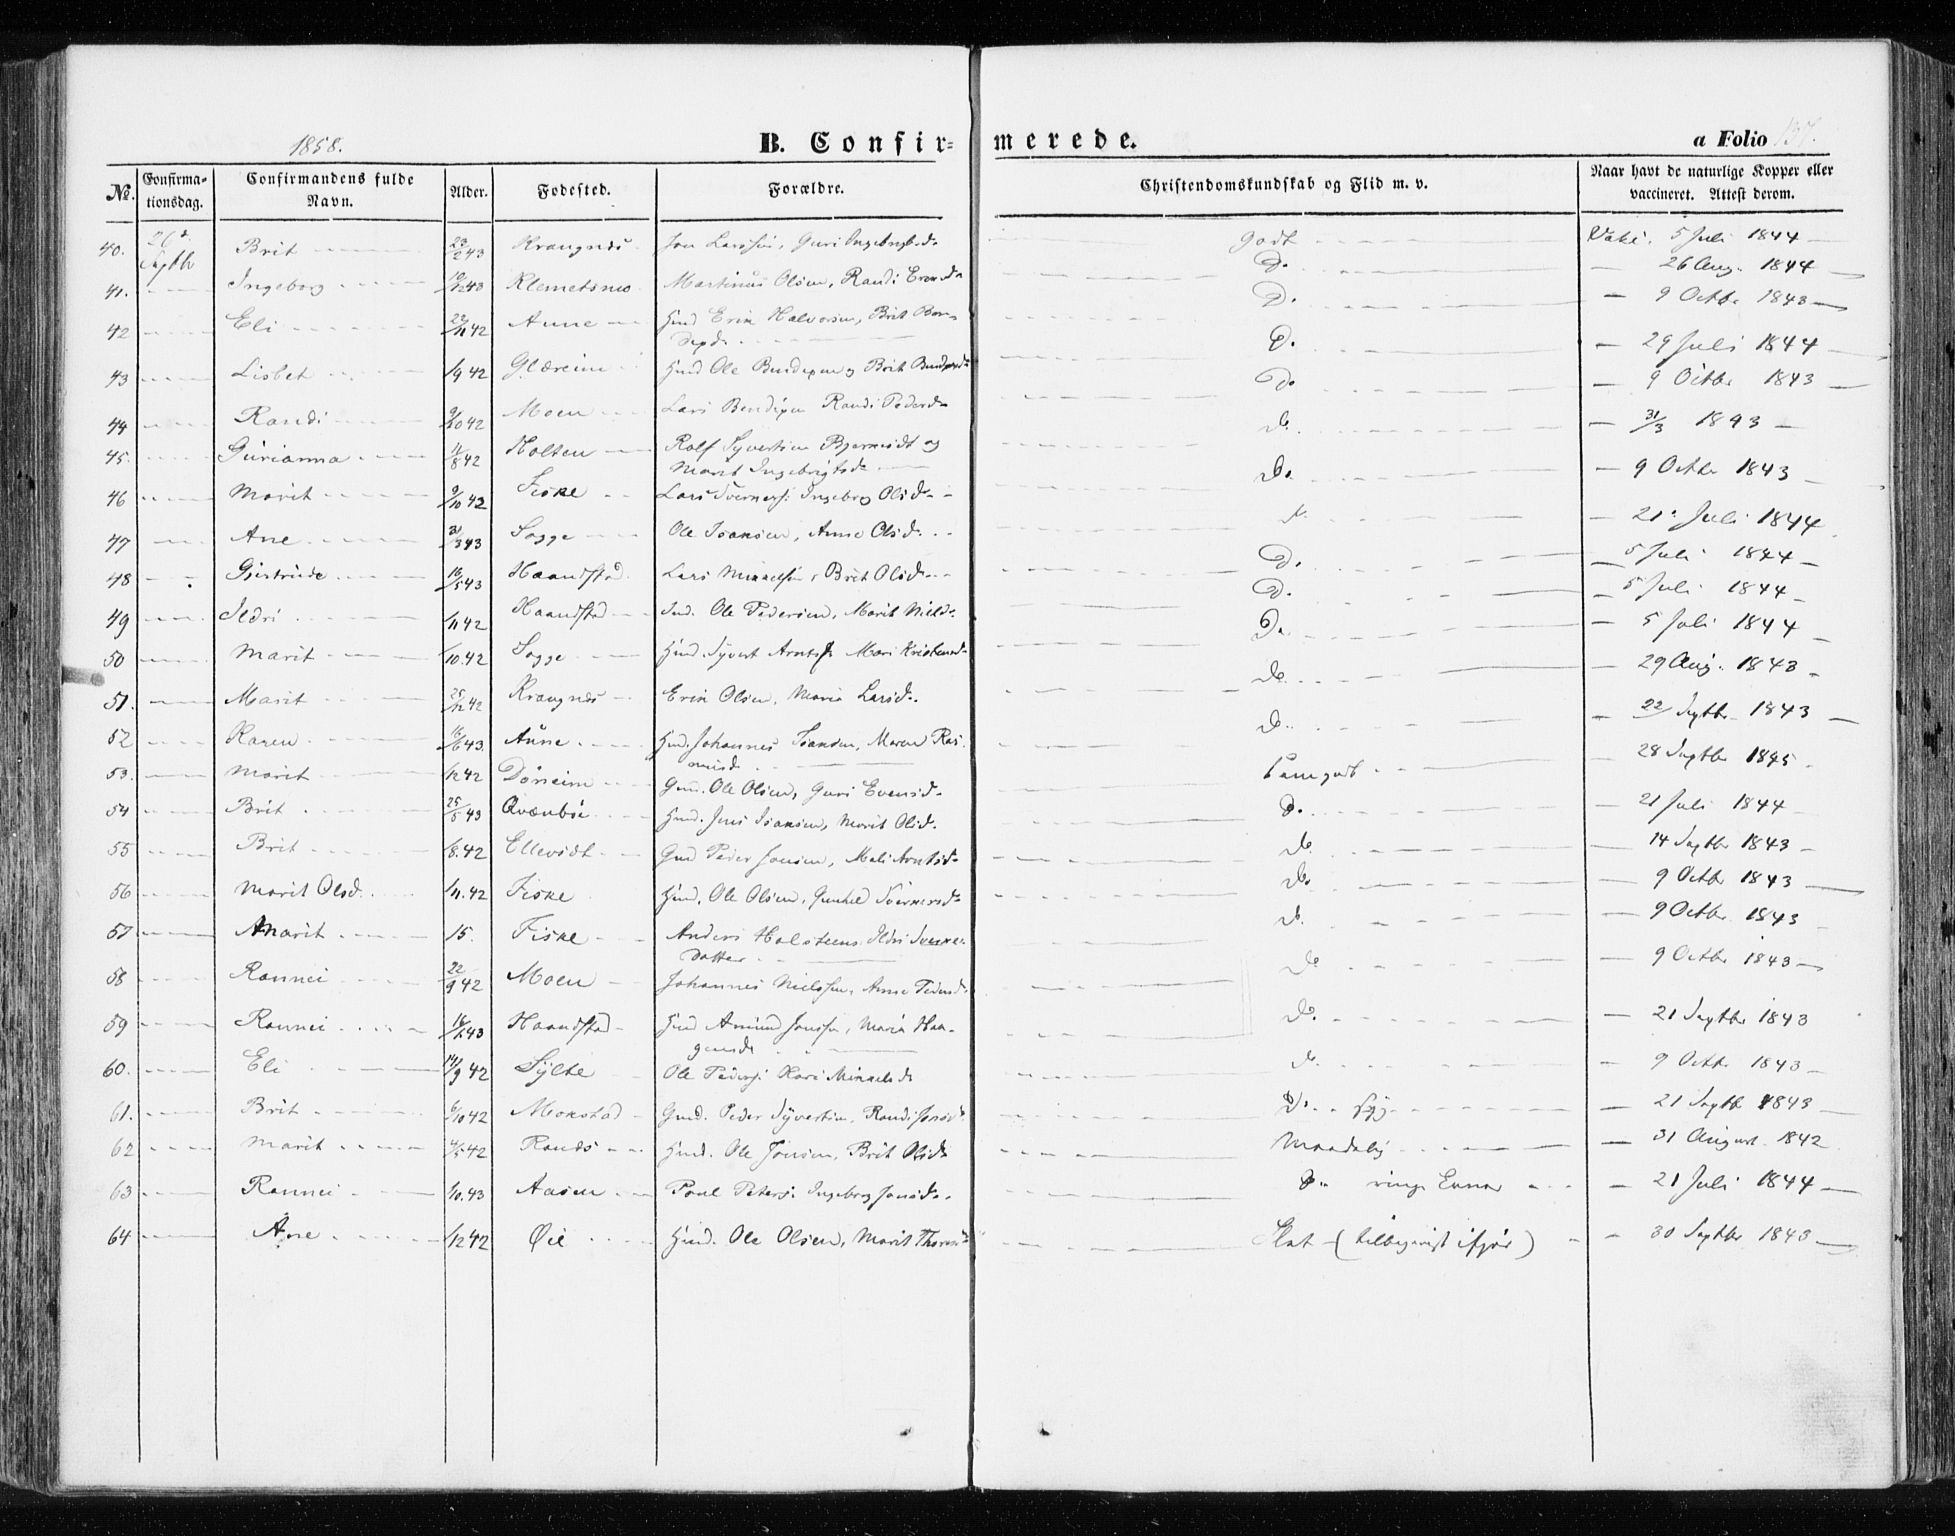 1858. B. Confir= merede. a Folio 137.
No. Confirma-tionsdag. Confirmandens fulde Navn. Alder. Fødested. Forældre. Christendomskundskab og Flid m. v. Naar havt de naturlige Kopper eller vaccineret. Attest derom.
40. 26d Septbr Brit 23/2 43 Krangnæs Jon Larssen, Guri Godt Vaki. 5 Juli 1844
41. Ingeborg 43 Klemetsmo Martinus Olsen, Randi Do 26 Aug. 1844
42 Eli 22/11 42 Aune Hmd Erik Halvorsen, Brit Do. 9 Octbr 1843
43 Lisbet /9 42 Glæreim Hmd Ole og Brit D. 29 Juli 1844
44 Randi 9/10 42 Moen Lars Randi Pedersd. Do 9 Octbr 1843
45. Gurianna 11/8 42 Holten Rolf Syvertsen og Do. 31/3 1843
Marit Ingebrigtsd.
46 Marit 9/10 42 Fiske Lars Ingebrog Olsd. Do. 9 Octbr 1843
47 Ane 31/3 43 Sogge Ole Isaksen, Anne Olsd. 21. Juli 1844
48 Gjertrude 16/5 43 Haandstad Lars Mikkelsen, Brit Olsd. D. 5 Juli 1844
49 Ildri /11 42 Haandstad Ole Pedersen, Marit Nielsd. D. 5 Juli 1844
50 Marit /10. 42 Sogge Hmd. Syvert Arntsen Mari D. 5 Juli 1844
51. Marit 25/12 42 Krangnæs Erik Olsen, Marie Larsd. Do. 29 Aug. 1843
52 Karen 16/6 43. Aune Hmd. Johannes Isaksen, Maren Ras- D. 22 Septbr 1843
musd.
53. Marit /12 42 Dørreim Gmd. Ole Olsen, Guri Evensd. Temgodt 28 Septbr 1845
54 Brit 25/5 43 Qvænbøe Hmd. Jens Isaksen, Marit Olsd. D. 21 Juli 1844
55 Brit /8. 42 Ellevidt Gmd Peder Jonsen, Mali Arntsd. D. 14 Septbr 1843
56 Marit Olsd. /11. 42 Fiske Hmd, Ole Olsen, Gunhild Sivertsd. Do. 9 Octbr 1843
57 Marit 15. Fiske Anders Holsteens, Ildri D. 9 Octbr. 1843
datter
58 Rannei 22/9 42 Moen Johannes Nielssen, Anne Pedersd. D 9 Octbr 1843
59 Rannei 43 Haandstad Hmd Amund Jonssen, Marin Haa- D. 21 Septbr 1843
gensd.
60. Eli 14/9 42 Sylte Ole Peders. Kari Mikkelsd. D. 9 Octbr 1843
61. Brit 6/10 42 Mokstad Gmd. Peder Syvertsen, Randi Jonsd. D. 21 Septbr 1843
62 Marit 4/5 42 Rands Hmd. Ole Jonsen, Brit Olsd. Maadelig 31 August 1842
63 Rannei /10. 43 Aasen Poul Peters. Ingeborg Jonsd. D. ringe Evner 21 Juli 1844
64 Ane /12 42 Øie Hmd. Ole Olsen, Marit Thoresd. Slet (tilbageviist ifjor) 30 Septbr 1843